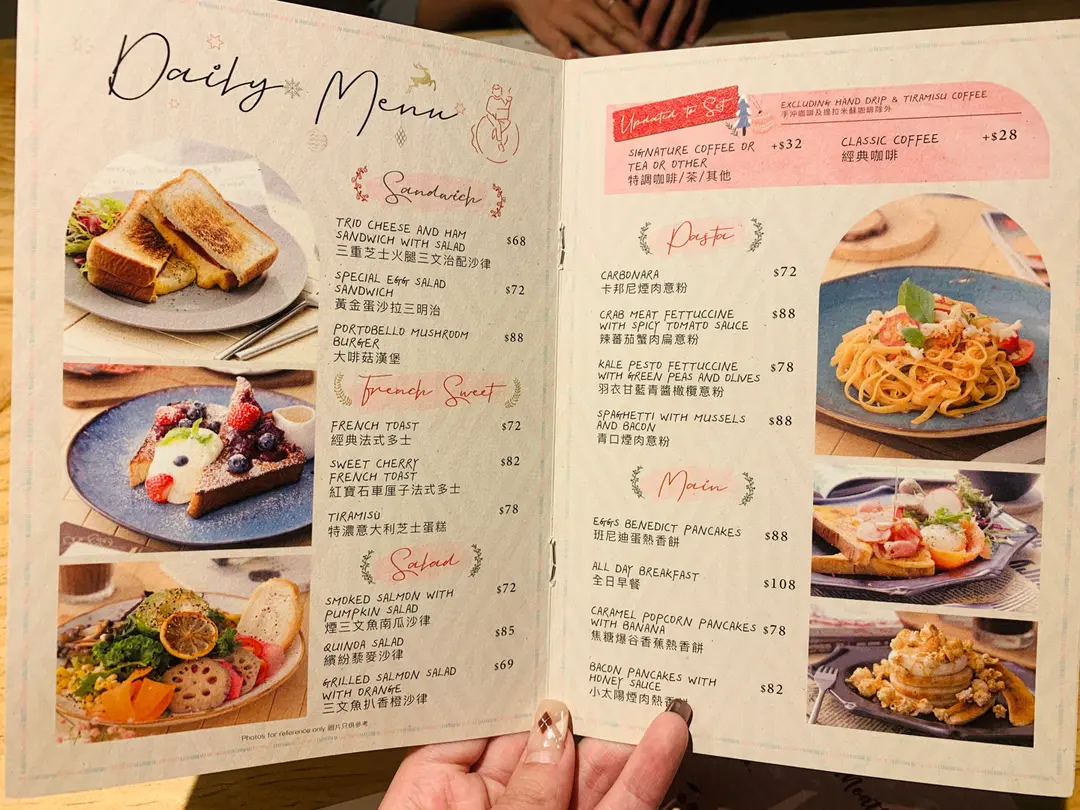 Daily Menu
Sandwich
TRIO CHEESE AND HAM
SANDWICH WITH SALAD
$68
三重芝士火腿三文治配沙律
SPECIAL EGG SALAD
SANDWICH
$72
黃金蛋沙拉三明治
PORTOBELLO MUSHROOM
BURGER
$88
大啡菇漢堡
French Sweet
FRENCH TOAST
$72
經典法式多士
SWEET CHERRY
FRENCH TOAST
$82
紅寶石車厘子法式多士
TIRAMISÙ
$78
特濃意大利芝士蛋糕
Salad
SMOKED SALMON WITH
PUMPKIN SALAD
$72
煙三文魚南瓜沙律
QUINOA SALAD
$85
繽紛藜麥沙律
GRILLED SALMON SALAD
WITH ORANGE
$69
三文魚扒香橙沙律
Photos for reference only 圖片只供參考
Updated to Set
EXCLUDING HAND DRIP & TIRAMISU COFFEE
手沖咖啡及提拉米蘇咖啡除外
SIGNATURE COFFEE OR
TEA OR OTHER
+$32
特調咖啡/茶/其他
CLASSIC COFFEE
+$28
經典咖啡
Pasta
CARBONARA
$72
卡邦尼煙肉意粉
CRAB MEAT FETTUCCINE
WITH SPICY TOMATO SAUCE
$88
辣蕃茄蟹肉扁意粉
KALE PESTO FETTUCCINE
WITH GREEN PEAS AND OLIVES
$78
羽衣甘藍青醬橄欖意粉
SPAGHETTI WITH MUSSELS
AND BACON
$88
青口煙肉意粉
Main
EGGS BENEDICT PANCAKES
$88
班尼迪蛋熱香餅
ALL DAY BREAKFAST
$108
全日早餐
CARAMEL POPCORN PANCAKES
WITH BANANA
$78
焦糖爆谷香蕉熱香餅
BACON PANCAKES WITH
HONEY SAUCE
$82
小太陽煙肉熱香